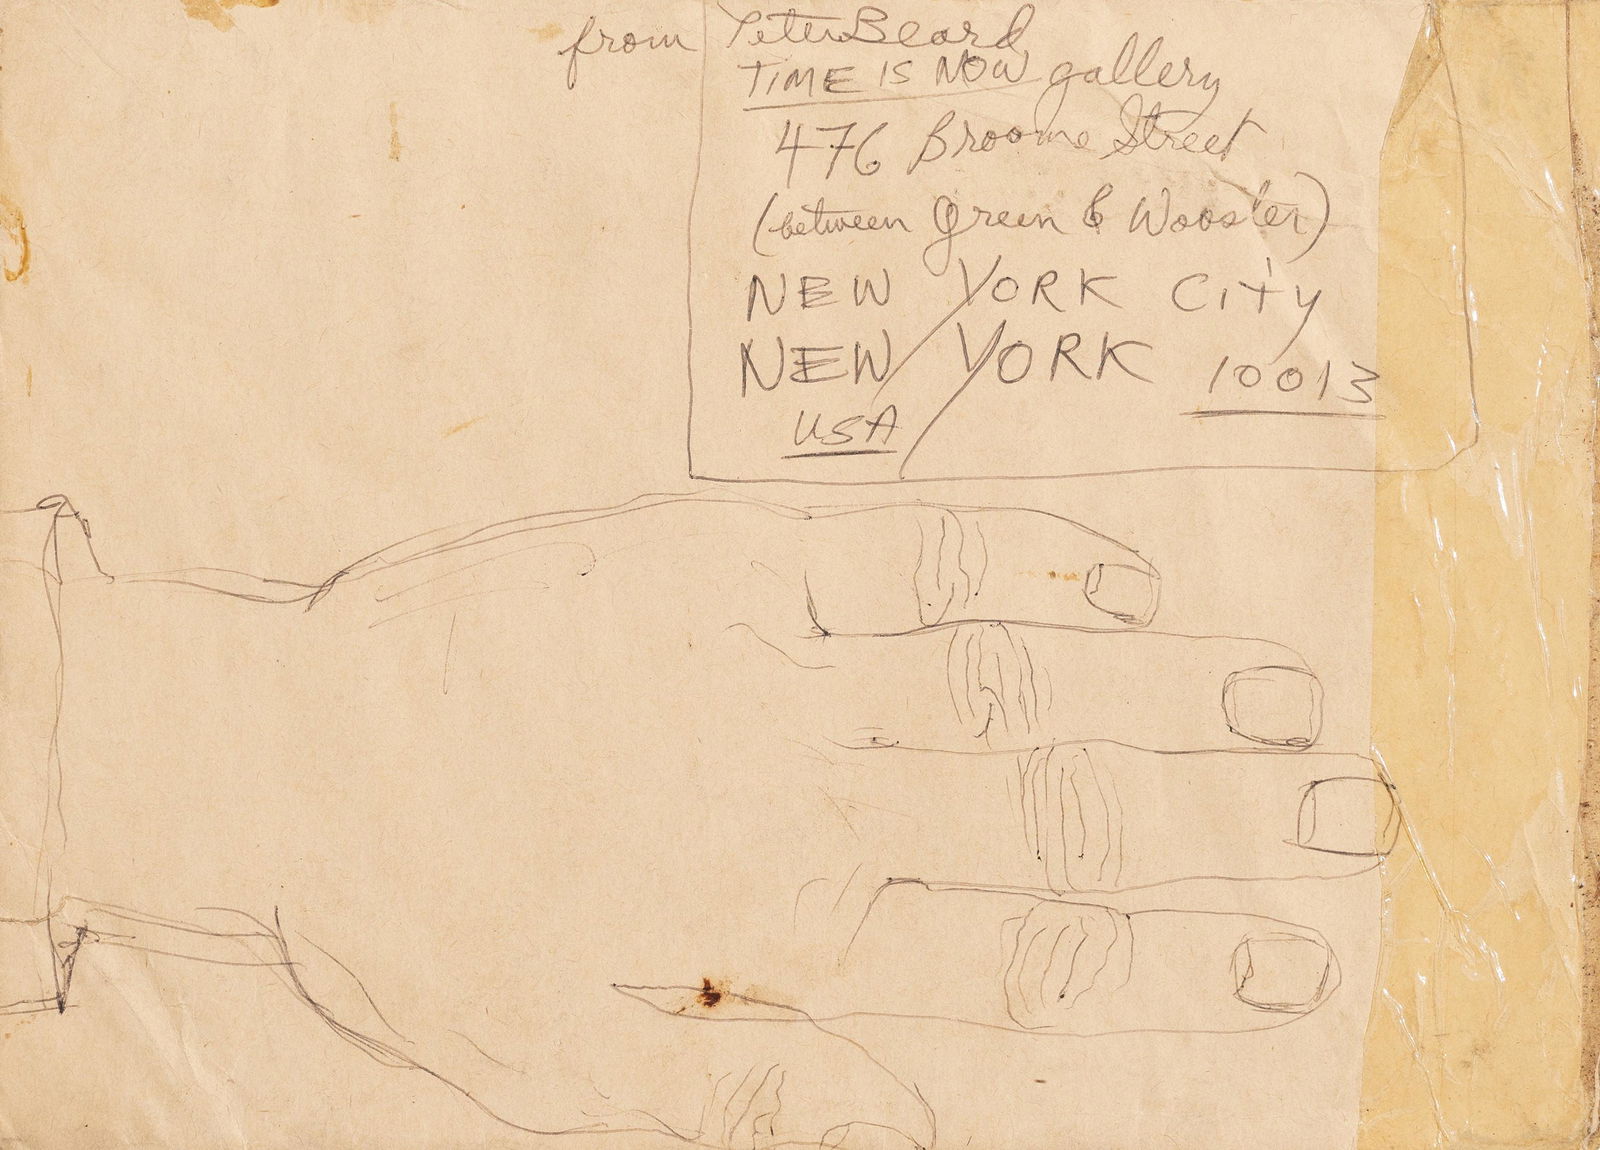 from Peter Beard
TIME IS NOW gallery
476 Broome Street
(between Green & Wooster)
NEW YORK CITY
NEW YORK 10013
USA